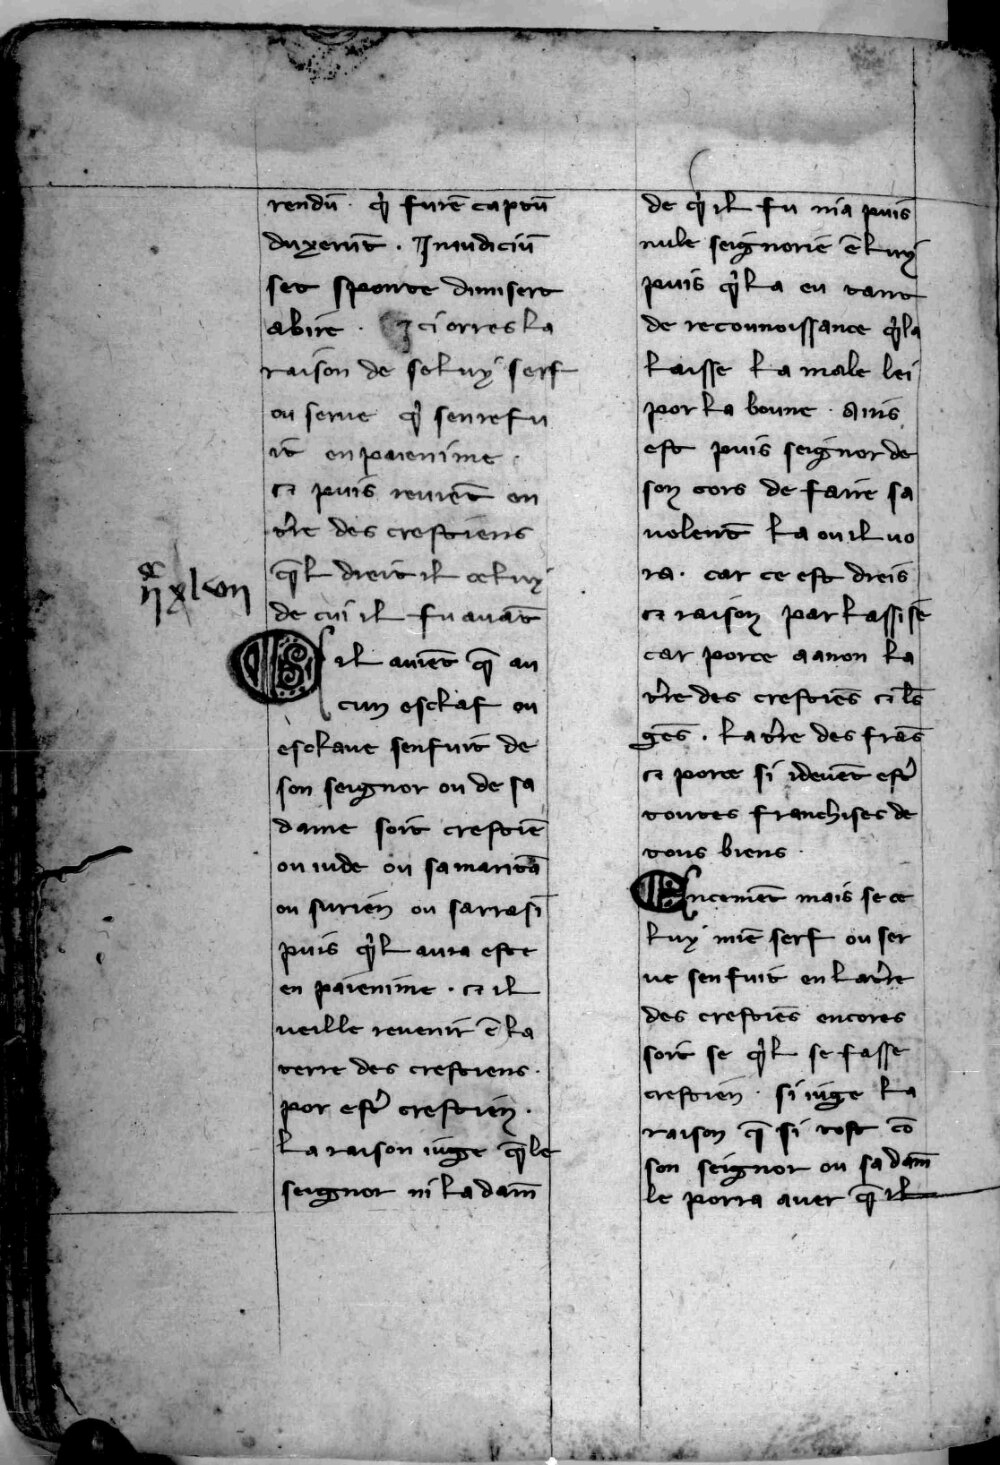 rendū · q̇ furēt captū
duxerūt · Jn iudiciū
set sponte dimisert
abire · J ci orres la
raison de seluy serf
ou serue q̇ senrefu
it en paienime ·
⁊ puis reuiēt en
tr̄re des crestiens
q̄l dreit il celuy
de cui il fu auāt
ijᶜxlvij
S il auiēt q̄ au
cun esclaf ou
esclaue senfuit de
son seignor ou de sa
dame soit crestiē
ou iude ou samaritā
ou surien ou sarrasī
puis q̇l aura este
en paienime · ⁊ il
veille reuenir ē la
terre des crestiens ·
por estr̄ crestien ·
la raison iuge q̄ le
seignor ni la dam̄
de q̇ il fu nia puis
nule seignorie ē luy
puis q̇l a eu tant
de reconnoissance q̇l a
laisse la male lei
por la bonne · Ains
est puis seignor de
son cors de faire sa
volent̄ la ou il uo
ra · car ce est dreis
⁊ raison par lassise
car porce a a non la
tr̄re des crestiēs ⁊ ls̄
gēs · la tr̄re des frās
⁊ porce si ideuēt estr̄
toutes franchises de
tous biens ·
Encemēt mais se ce
luy mīe serf ou ser
ue senfuit en la tr̄re
des crestiēs encores
soit se q̇l se fasse
crestien · si iuge la
raison q̄ si tost cō
son seignor ou sa dam̄
le porra auer q̄ il